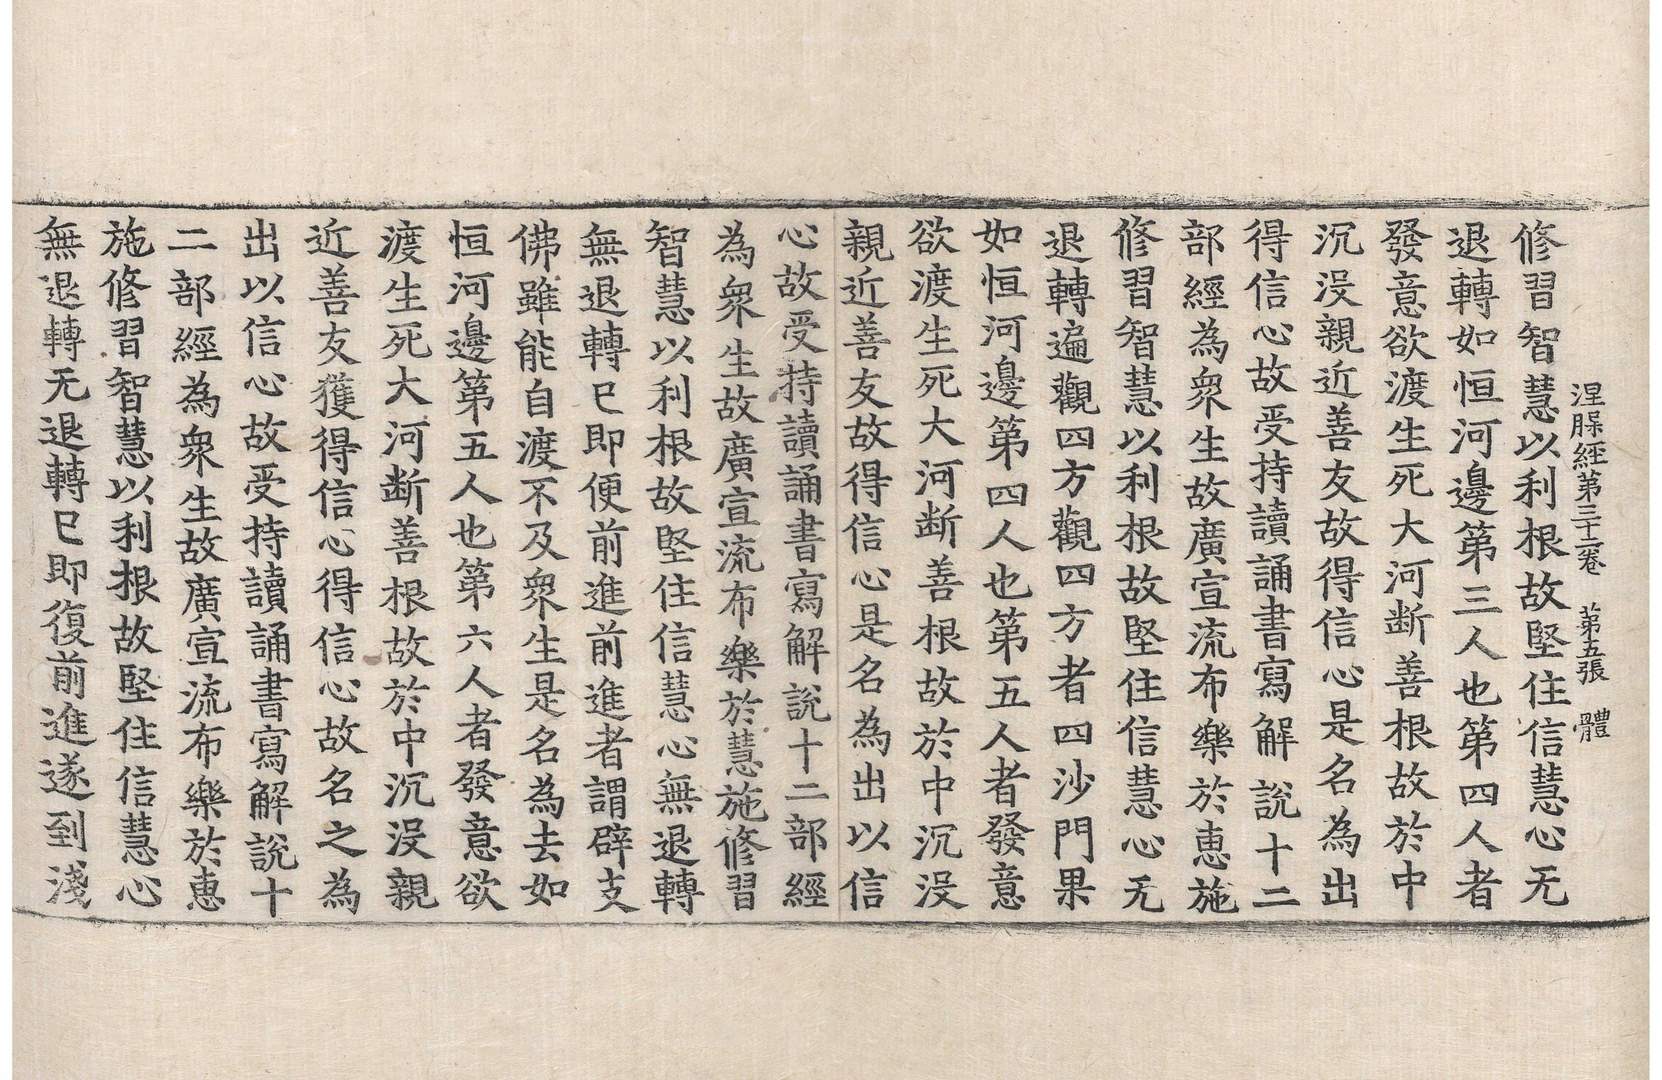 涅槃經第三十二卷 第五張 體
修習智慧以利根故堅住信慧心无
退轉如恒河邊第三人也第四人者
發意欲渡生死大河断善根故於中
沉没親近善友故得信心是名為出
得信心故受持讀誦書寫解說十二
部經為衆生故廣宣流布樂於恵施
修習智慧以利根故堅住信慧心无
退轉遍觀四方觀四方者四沙門果
如恒河邊第四人也第五人者發意
欲渡生死大河断善根故於中沉没
親近善友故得信心是名為出以信
心故受持讀誦書寫解說十二部經
為衆生故廣宣流布樂於慧施修習
智慧以利根故堅住信慧心無退轉
無退轉已即便前進前進者謂辟支
佛雖能自渡不及衆生是名為去如
恒河邊第五人也第六人者發意欲
渡生死大河断善根故於中沉没親
近善友獲得信心得信心故名之為
出以信心故受持讀誦書寫解說十
二部經為衆生故廣宣流布樂於恵
施修習智慧以利根故堅住信慧心
無退轉无退轉已即復前進遂到淺